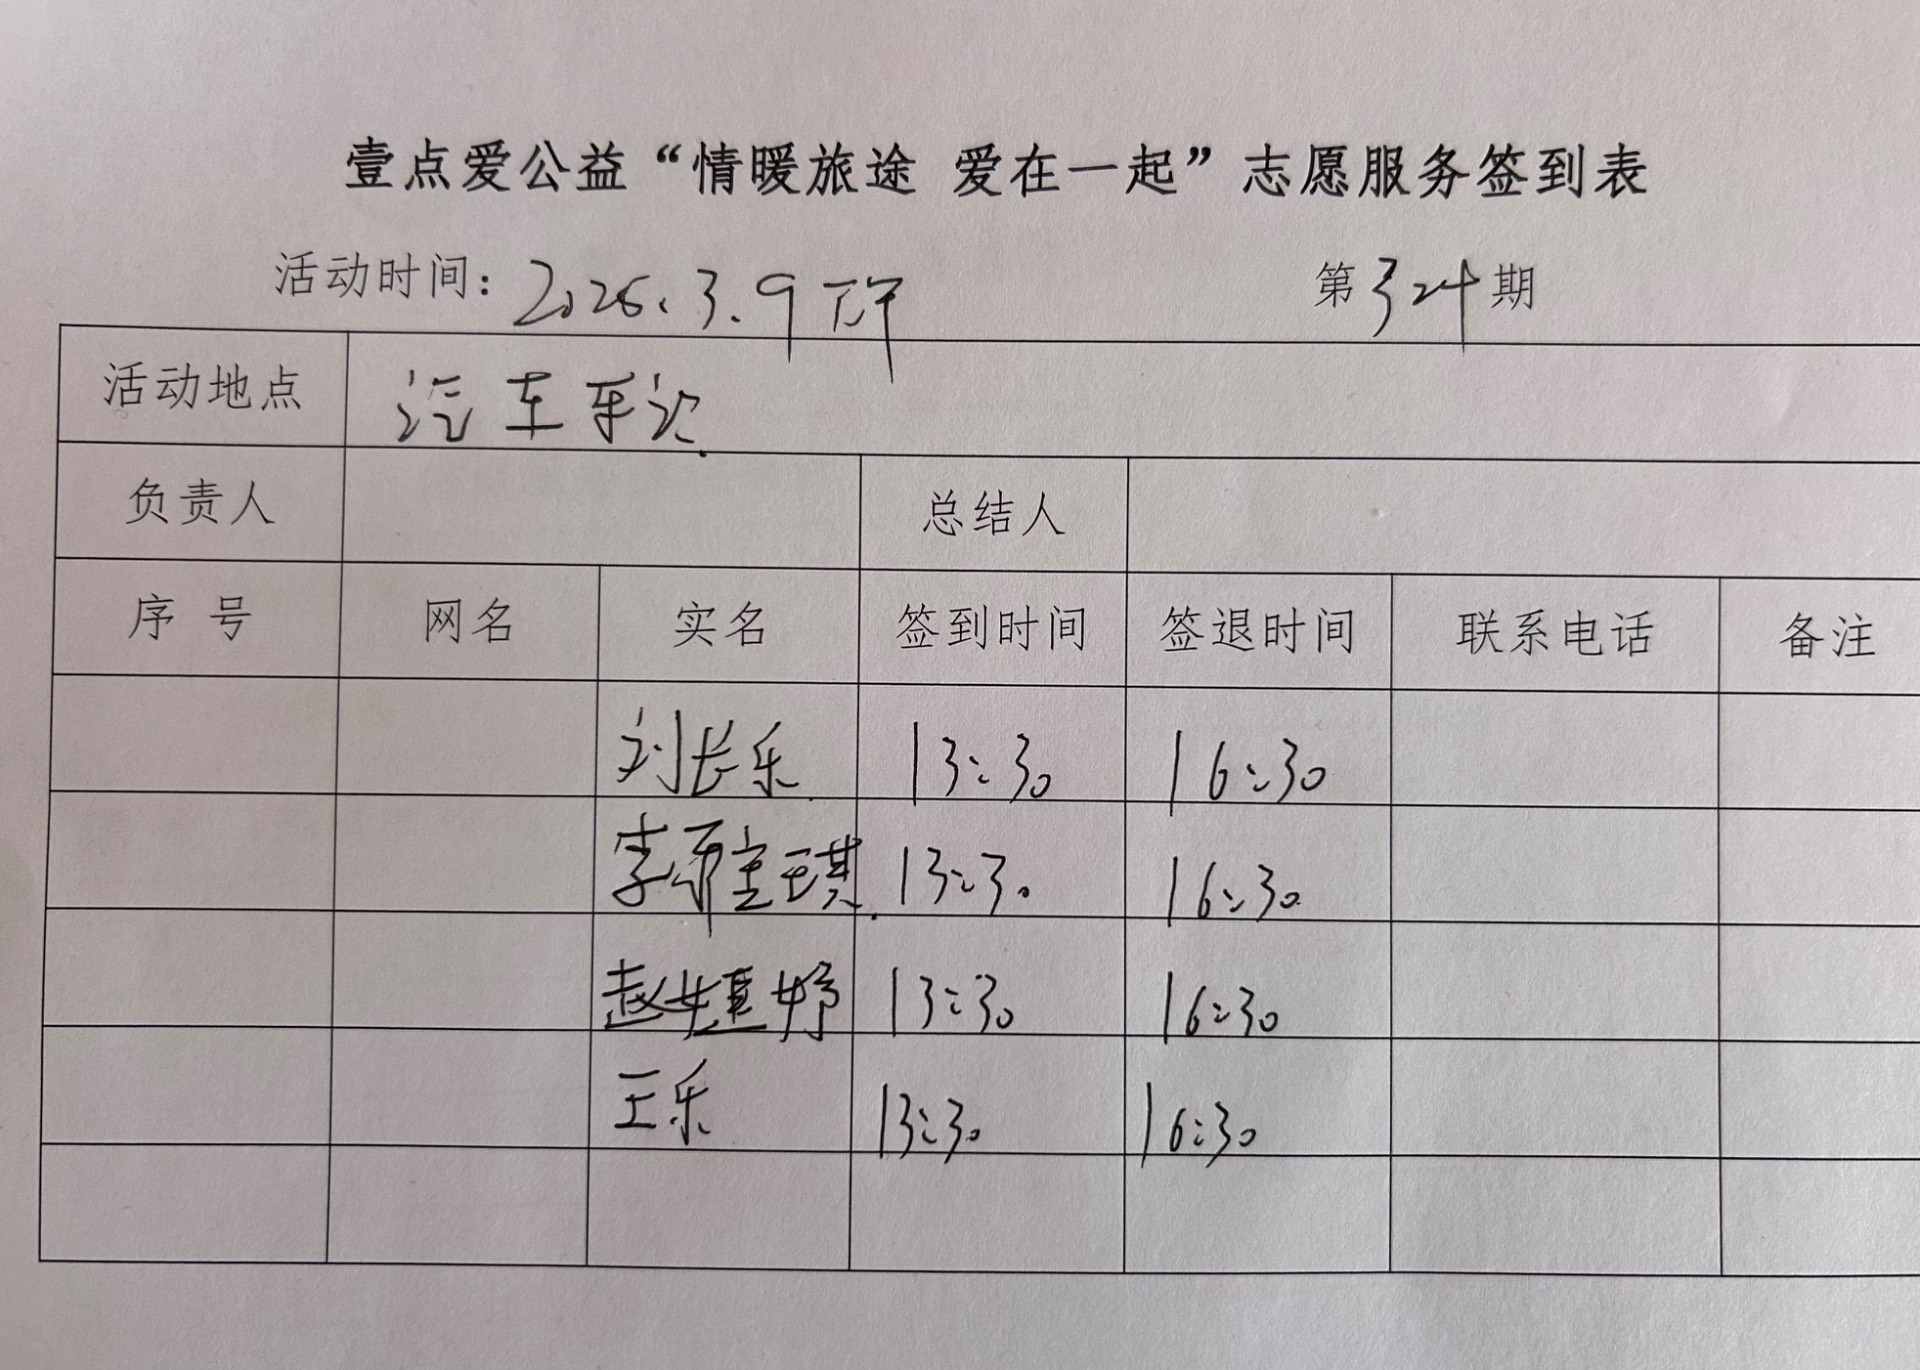 壹点爱公益“情暖旅途 爱在一起”志愿服务签到表
活动时间：2026.3.9下午 第324期
活动地点 汽车车站
负责人 总结人
序号 网名 实名 签到时间 签退时间 联系电话 备注
刘长乐 13:30 16:30
李 琪 13:30 16:30
赵 婷 13:30 16:30
王乐 13:30 16:30